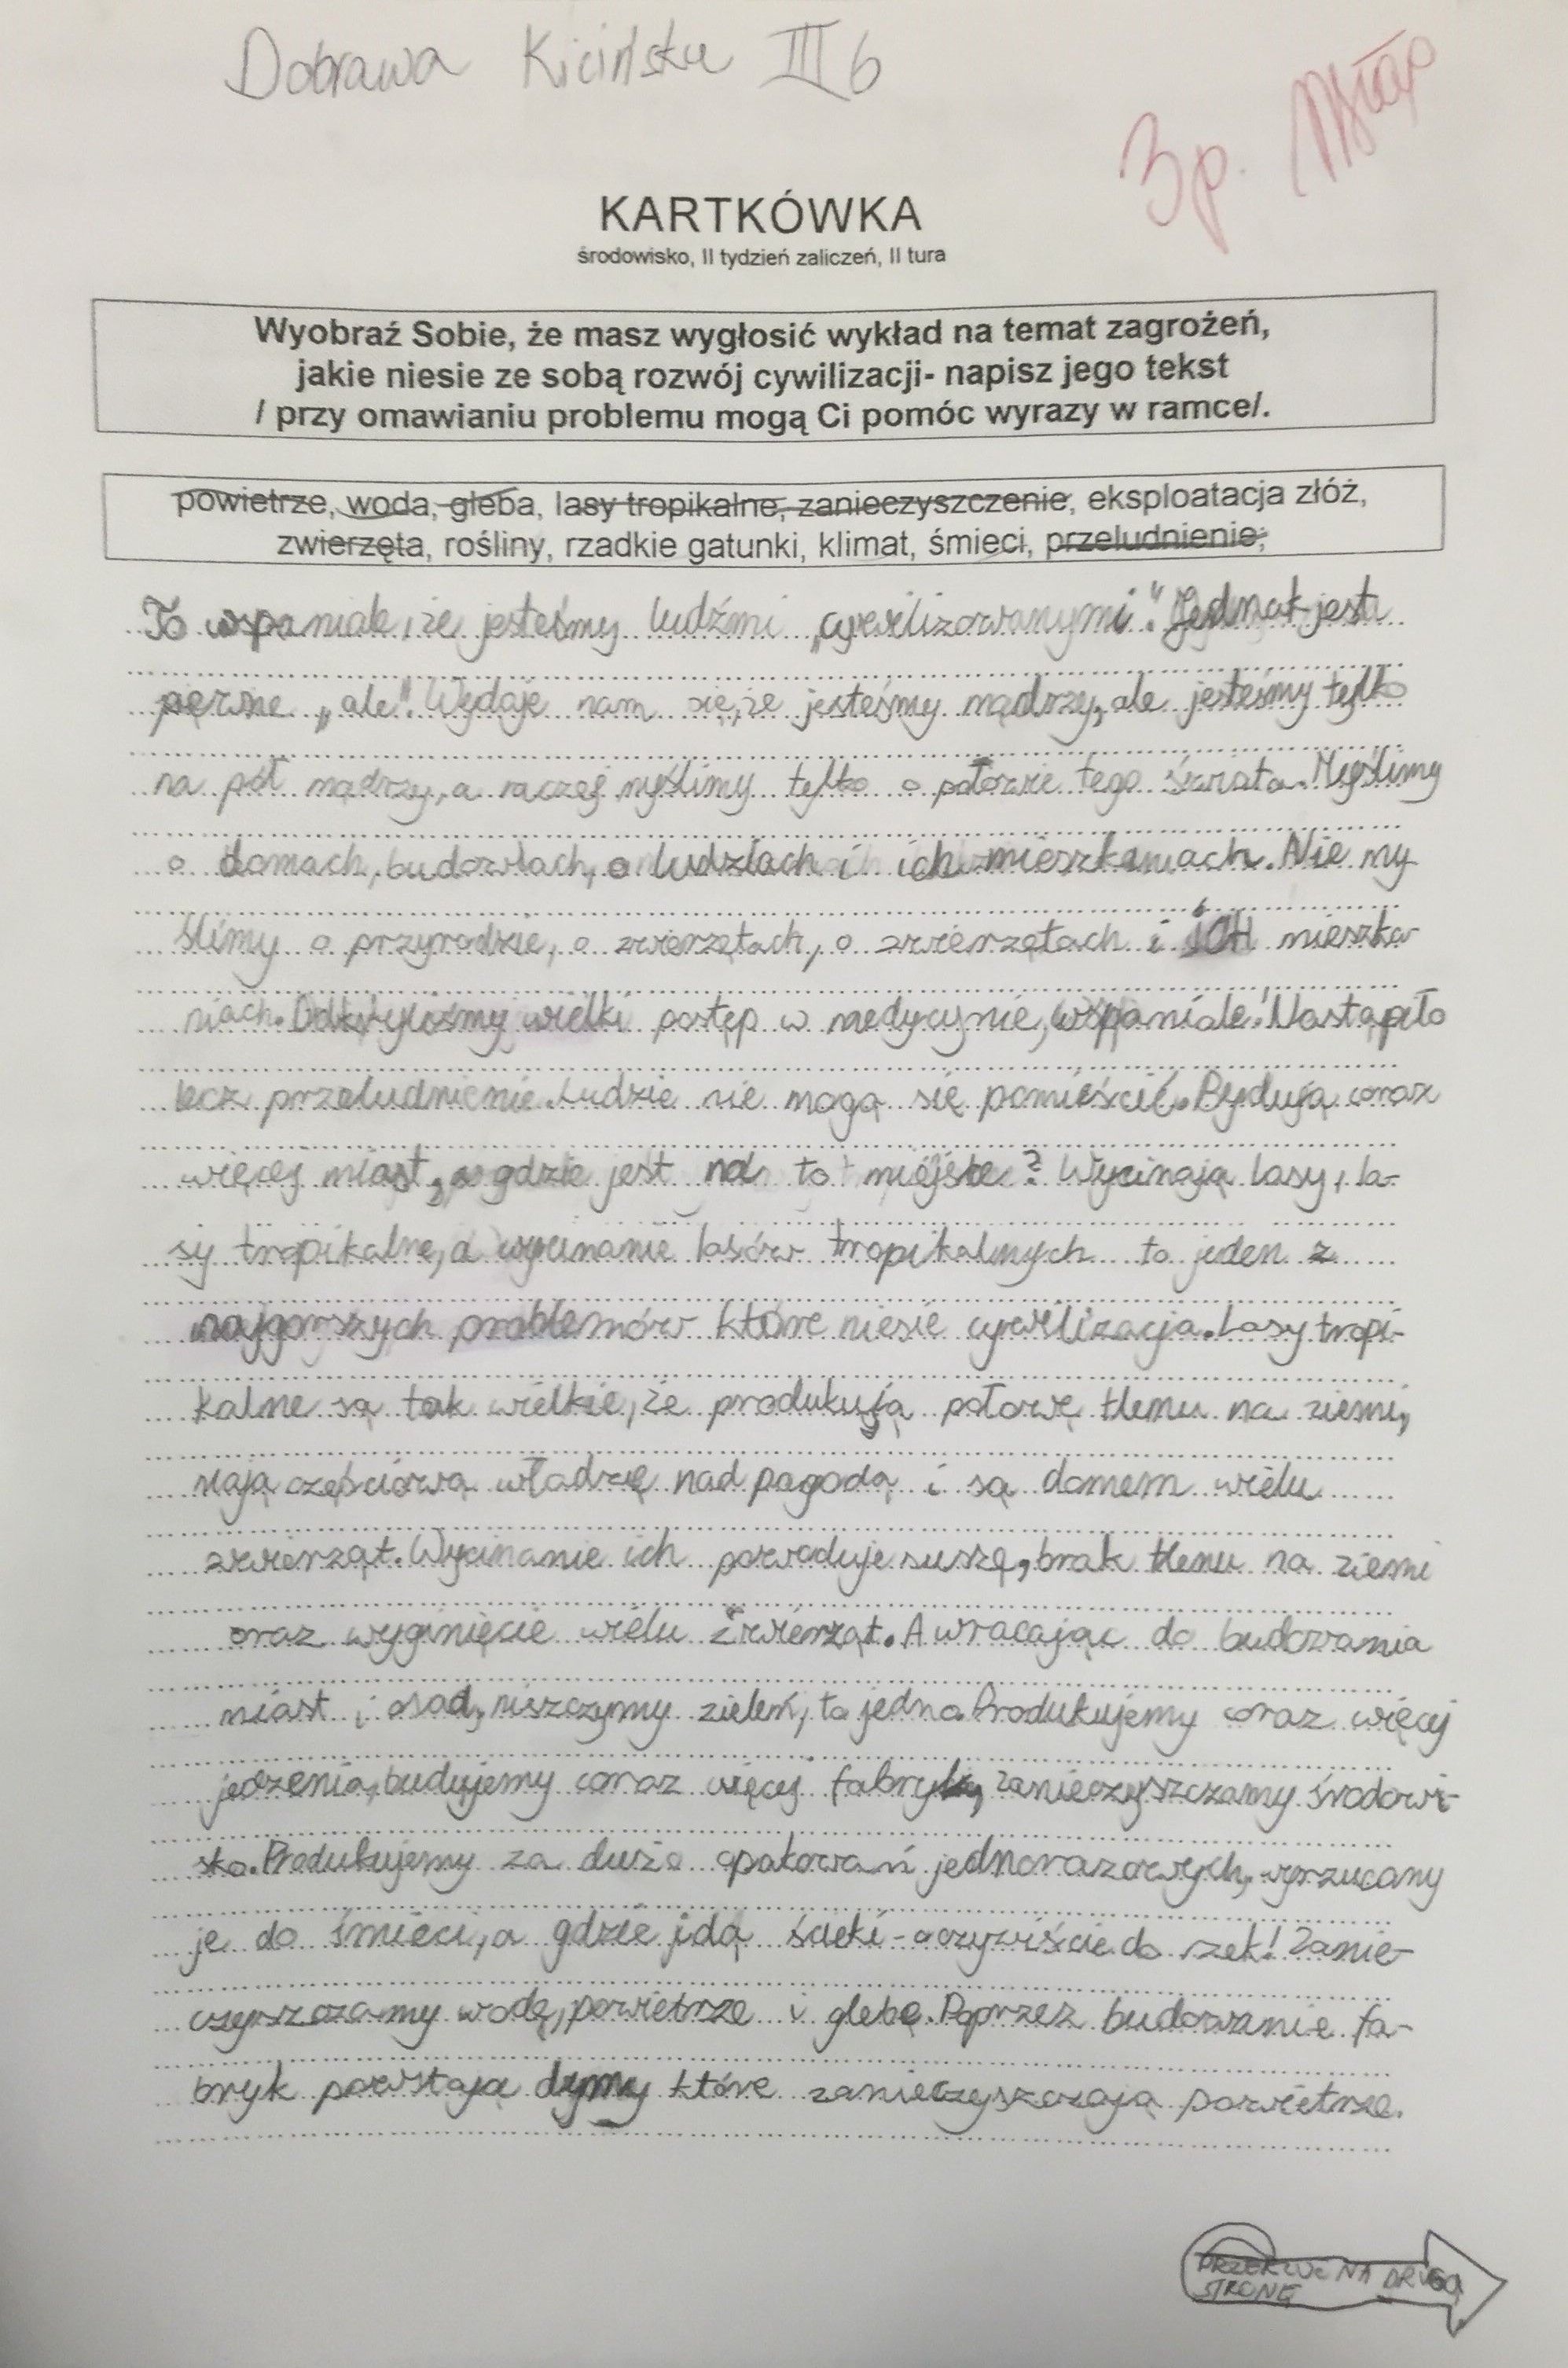 Dobrawa Kicińska III b
3p.
KARTKÓWKA
środowisko, II tydzień zaliczeń, II tura
Wyobraź Sobie, że masz wygłosić wykład na temat zagrożeń,
jakie niesie ze sobą rozwój cywilizacji- napisz jego tekst
/ przy omawianiu problemu mogą Ci pomóc wyrazy w ramce/.
powietrze, woda, gleba, lasy tropikalne, zanieczyszczenie, eksploatacja złóż,
zwierzęta, rośliny, rzadkie gatunki, klimat, śmieci, przeludnienie,
To wspaniale, że jesteśmy ludźmi „cywilizowanymi". Jednak jest
pewne „ale". Wydaje nam się, że jesteśmy mądrzy, ale jesteśmy tylko
na pół mądrzy, a raczej myślimy tylko o połowie tego świata. Myślimy
o domach, budowlach, o ludziach i ich mieszkaniach. Nie my
ślimy o przyrodzie, o zwierzętach, o zwierzętach i ICH mieszka
niach. Odkryliśmy wielki postęp w medycynie, wspaniale! Nastąpiło
lecz przeludnienie. Ludzie nie mogą się pomieścić. Budują coraz
więcej miast, a gdzie jest na to miejsce? Wycinają lasy, la-
sy tropikalne, a wycinanie lasów tropikalnych to jeden z
najgorszych problemów które niesie cywilizacja. Lasy tropi-
kalne są tak wielkie, że produkują połowę tlenu na ziemi,
mają częściową władzę nad pogodą i są domem wielu
zwierząt. Wycinanie ich powoduje suszę, brak tlenu na ziemi
oraz wyginięcie wielu zwierząt. A wracając do budowania
miast i osad, niszczymy zieleń, to jedno. Produkujemy coraz więcej
jedzenia, budujemy coraz więcej fabryk, zanieczyszczamy środowi-
sko. Produkujemy za dużo opakowań jednorazowych, wyrzucamy
je do śmieci, a gdzie idą ścieki - oczywiście do rzek! Zanie-
czyszczamy wodę, powietrze i glebę. Poprzez budowanie fa-
bryk powstają dymy które zanieczyszczają powietrze.
NA DRUGĄ
STRONĘ